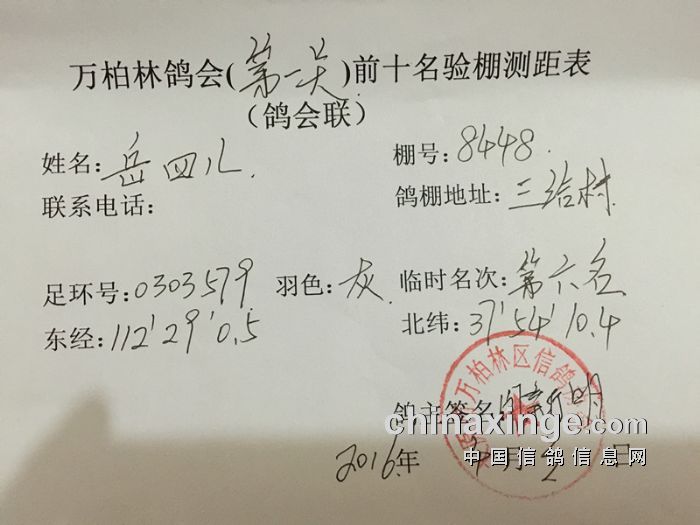 万柏林鸽会(第一关)前十名验棚测距表
(鸽会联)
姓名:岳四儿 棚号:8448.
联系电话: 鸽棚地址:三给村
足环号:0303579 羽色:灰 临时名次:第六名
东经:112'29'0.5 北纬:37'54'10.4
万柏林区信鸽
鸽主签名 明
chinaxinge.com
中国信鸽信息网
2016年 月 2 日